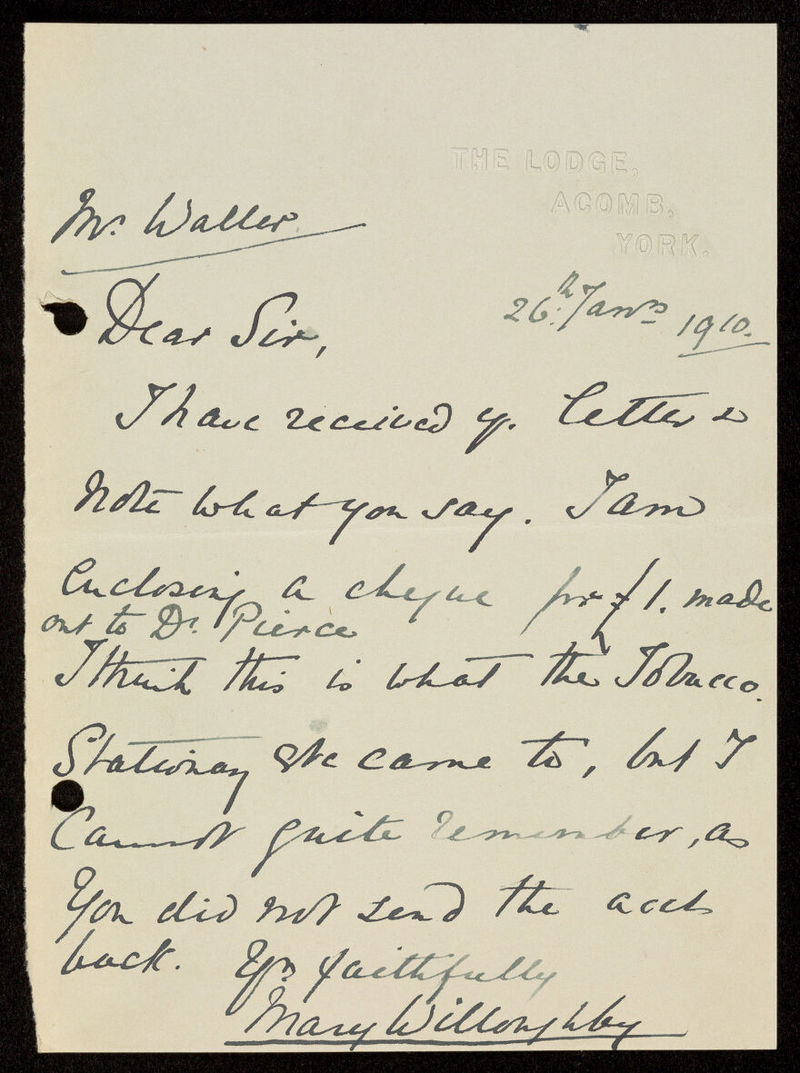 THE LODGE,
ACOMB,
YORK.
Mr. Waller
26th Janry 1910.
Dear Sir,
I have received yr. letter &
note what you say. I am
enclosing a cheque for £1. made
out to Dr. Pierce
I think this is what the Tobacco.
Stationay &tc came to, but I
cannot quite remember, as
you did not send the accts
back. Yrs faithfully
Mary Willoughby